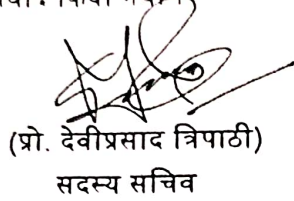 (प्रो. देवीप्रसाद त्रिपाठी)
सदस्य सचिव